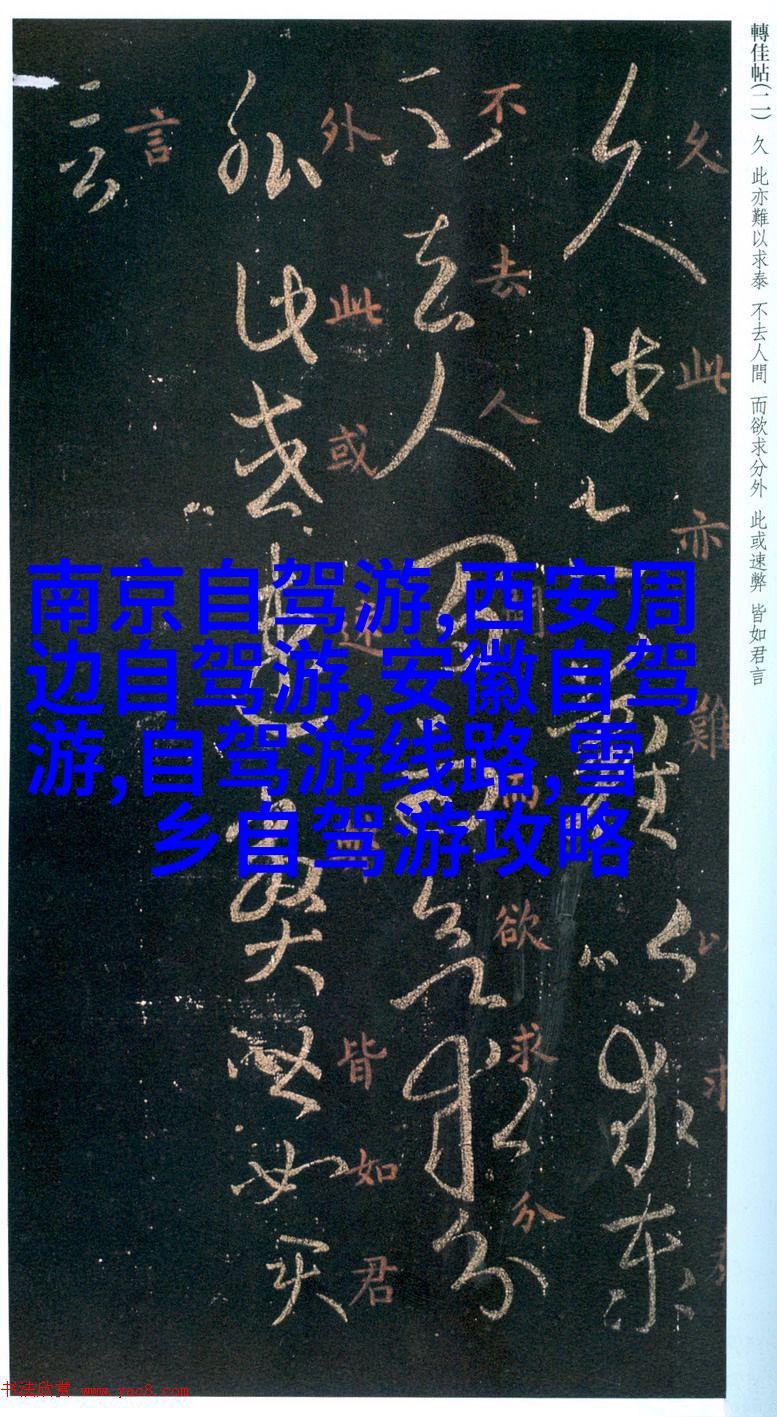 轉佳帖(二) 久 此亦難以求泰 不去人間 而欲求分外 此或速弊 皆如君言
久此亦難以求
不去人間而欲求分
外此或速弊皆如君
言
南京自驾游,西安周
边自驾游,安徽自驾
游,自驾游线路,雪
乡自驾游攻略
书法欣赏 www.yac8.com